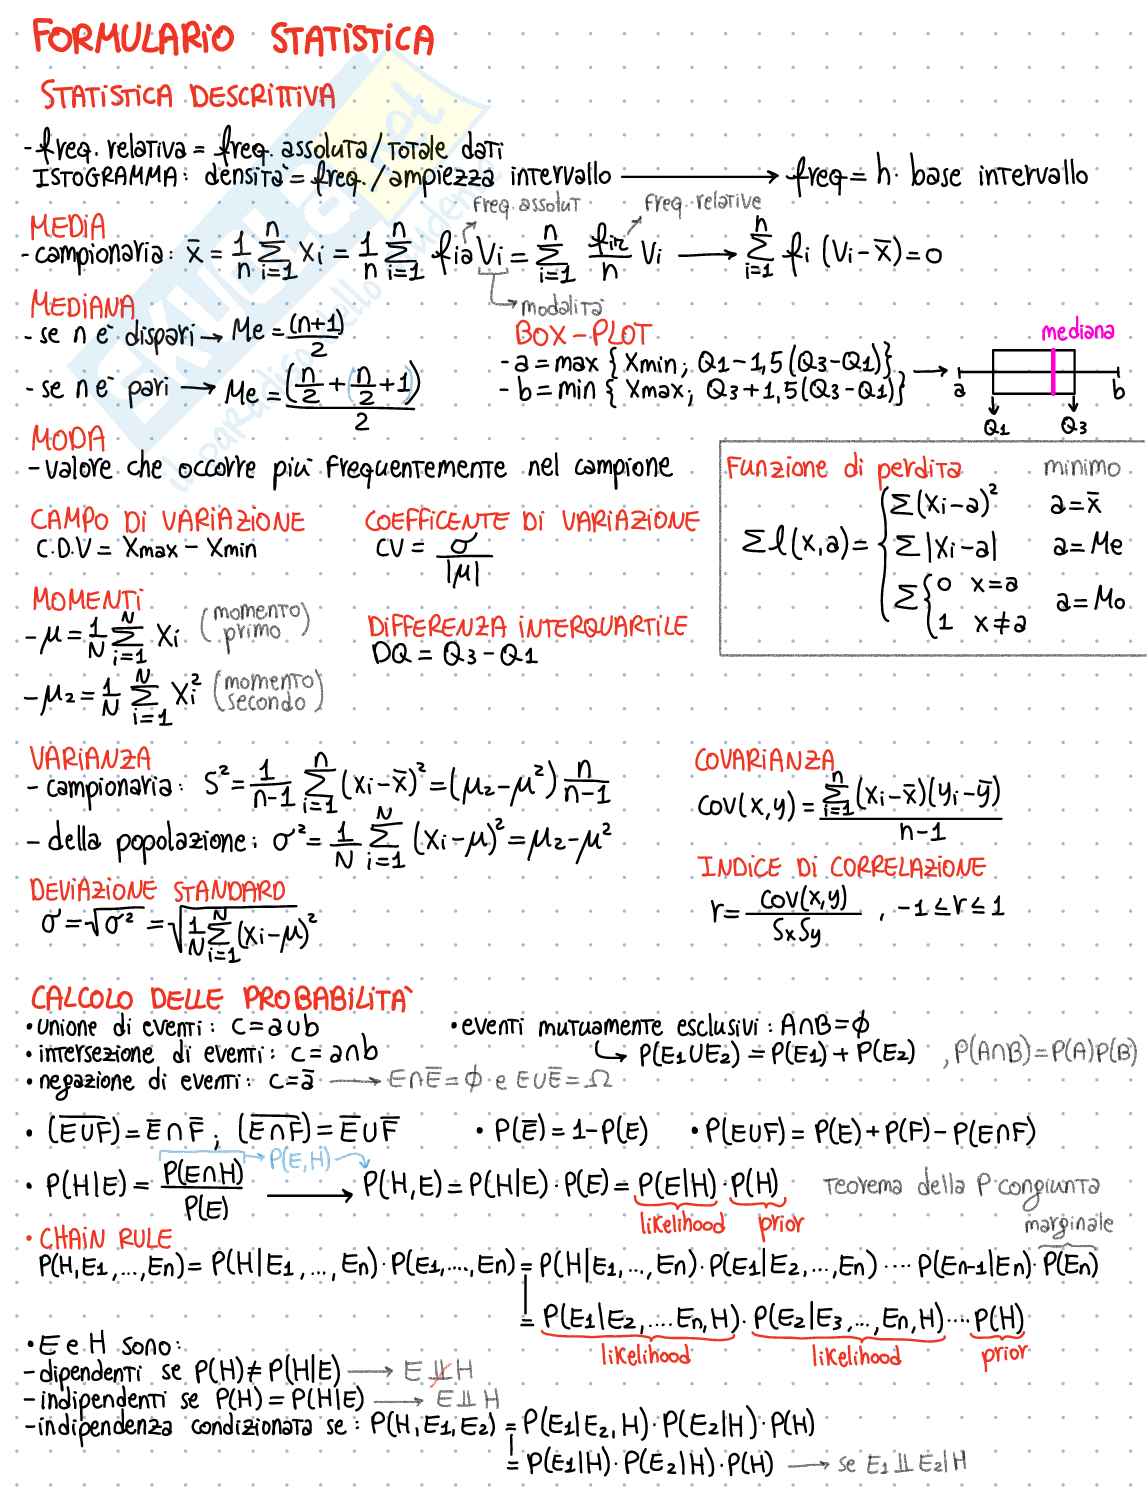 FORMULARIO STATISTICA
STATISTICA DESCRITTIVA
- freq. relativa = freq. assoluta / totale dati
ISTOGRAMMA: densità = freq. / ampiezza intervallo ⟶ freq = h · base intervallo
MEDIA
freq. assolut
freq. relative
- campionaria: x̄ = 1/n Σ_{i=1}^{n} xi = 1/n Σ_{i=1}^{n} fia Vi = Σ_{i=1}^{n} fir/n Vi ⟶ Σ_{i=1}^{n} fi (Vi - x̄) = 0
modalità
MEDIANA
- se n è dispari → Me = (n+1)/2
- se n è pari → Me = (n/2 + (n/2 + 1))/2
BOX-PLOT
- a = max { Xmin; Q1 - 1,5 (Q3 - Q1)}
- b = min { Xmax; Q3 + 1,5 (Q3 - Q1)}
mediana
a b
Q1 Q3
MODA
- valore che occorre più frequentemente nel campione
CAMPO DI VARIAZIONE
C.D.V = Xmax - Xmin
COEFFICENTE DI VARIAZIONE
CV = σ/|μ|
Funzione di perdita minimo
Σ l(x,a) =
Σ (xi - a)² a = x̄
Σ |xi - a| a = Me
Σ { 0 x = a
1 x ≠ a a = Mo
MOMENTI
- μ = 1/N Σ_{i=1}^{N} xi (momento primo)
- μ2 = 1/N Σ_{i=1}^{N} xi² (momento secondo)
DIFFERENZA INTERQUARTILE
DQ = Q3 - Q1
VARIANZA
- campionaria: S² = 1/(n-1) Σ_{i=1}^{n} (xi - x̄)² = (μ2 - μ²) n/(n-1)
- della popolazione: σ² = 1/N Σ_{i=1}^{N} (xi - μ)² = μ2 - μ²
COVARIANZA
COV(x,y) = Σ_{i=1}^{n} (xi - x̄)(yi - ȳ) / (n-1)
DEVIAZIONE STANDARD
σ = √σ² = √(1/N Σ_{i=1}^{N} (xi - μ)²)
INDICE DI CORRELAZIONE
r = COV(x,y) / SxSy , -1 ≤ r ≤ 1
CALCOLO DELLE PROBABILITÀ
• unione di eventi: c = a∪b
• intersezione di eventi: c = a∩b
• negazione di eventi: c = ā ⟶ E∩Ē = ϕ e E∪Ē = Ω
• eventi mutuamente esclusivi: A∩B = ϕ
↳ P(E1∪E2) = P(E1) + P(E2) , P(A∩B) = P(A)P(B)
• (E̅∪̅F̅) = Ē∩F̄ ; (E̅∩̅F̅) = Ē∪F̄ • P(Ē) = 1 - P(E) • P(E∪F) = P(E) + P(F) - P(E∩F)
• P(H|E) = P(E∩H)/P(E) → P(E,H) ⟶ P(H,E) = P(H|E) · P(E) = P(E|H) · P(H) Teorema della P congiunta
likelihood prior
• CHAIN RULE
marginale
P(H,E1,...,En) = P(H|E1,...,En) · P(E1,...,En) = P(H|E1,...,En) · P(E1|E2,...,En) ···· P(En-1|En) · P(En)
= P(E1|E2,....En,H) · P(E2|E3,...,En,H) ···· P(H)
likelihood likelihood prior
• E e H sono:
- dipendenti se P(H) ≠ P(H|E) ⟶ E ⫫̸ H
- indipendenti se P(H) = P(H|E) ⟶ E ⫫ H
- indipendenza condizionata se: P(H,E1,E2) = P(E1|E2,H) · P(E2|H) · P(H)
= P(E1|H) · P(E2|H) · P(H) ⟶ se E1 ⫫ E2|H